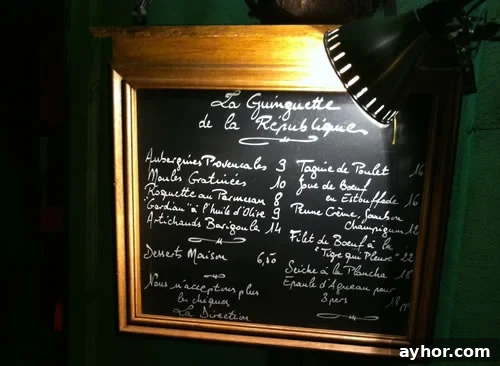 La Guinguette
de la République
Aubergines Provencales 9
Moules Gratinées 10
Roquette au Parmesan 8
"Gardian" à l'huile d'Olive 9
Artichauds Barigoule 14
Desserts Maison 6,50
Nous n'acceptons plus
les chèques
La Direction
Tagine de Poulet 16
Joue de Boeuf
en Estouffade 16
Penne Crème, Jambon
Champignons 12
Filet de Boeuf à la
"Tigre qui Pleure" 22
Seiche à la Plancha 18
Epaule d'Agneau pour
3 pers 18
ayhor.com